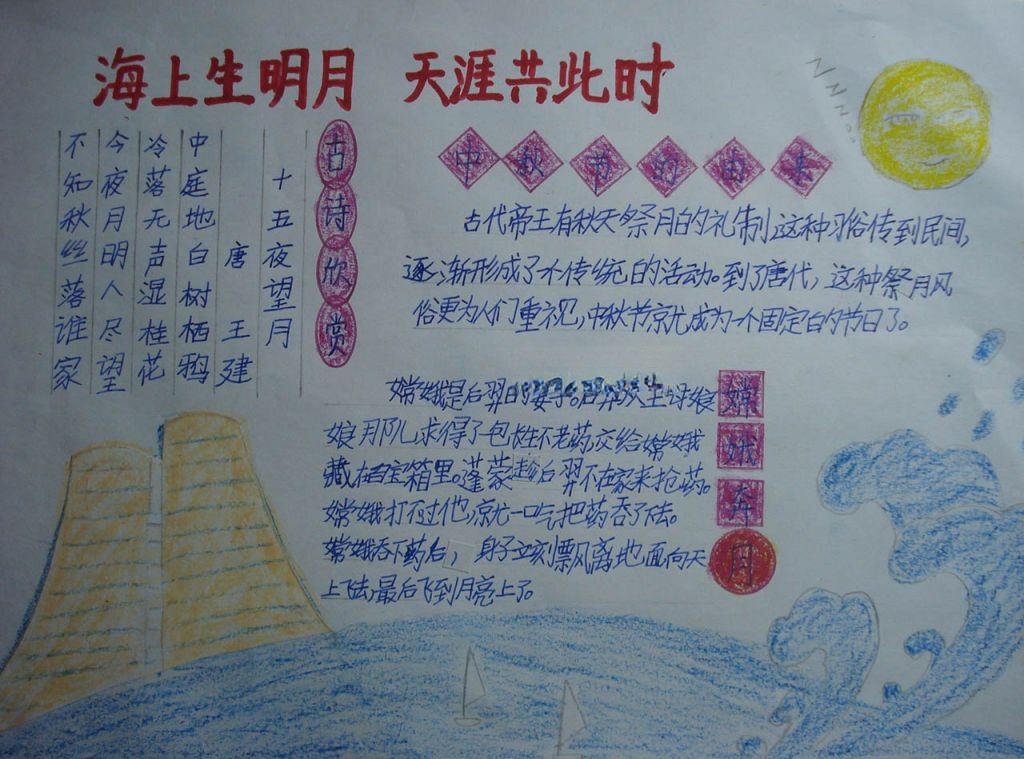 海上生明月 天涯共此时
古诗欣赏
十五夜望月
唐 王建
中庭地白树栖鸦
冷落无声湿桂花
今夜月明人尽望
不知秋丝落谁家
中秋节的由来
古代帝王有秋天祭月的礼制 这种习俗传到民间,
逐渐形成了个传统的活动。到了唐代, 这种祭月风
俗更为人们重视, 中秋节就成为一个固定的节日了。
嫦娥奔月
嫦娥是后羿的妻子。后羿从王母娘
娘那儿求得了包长生不老药交给嫦娥
藏在百宝箱里。蓬蒙趁后羿不在家来抢药。
嫦娥打不过他,就一口气把药吞了下去。
嫦娥吞下药后, 身子立刻飘风离地面向天
上飞去,最后飞到月亮上了。
NNNN